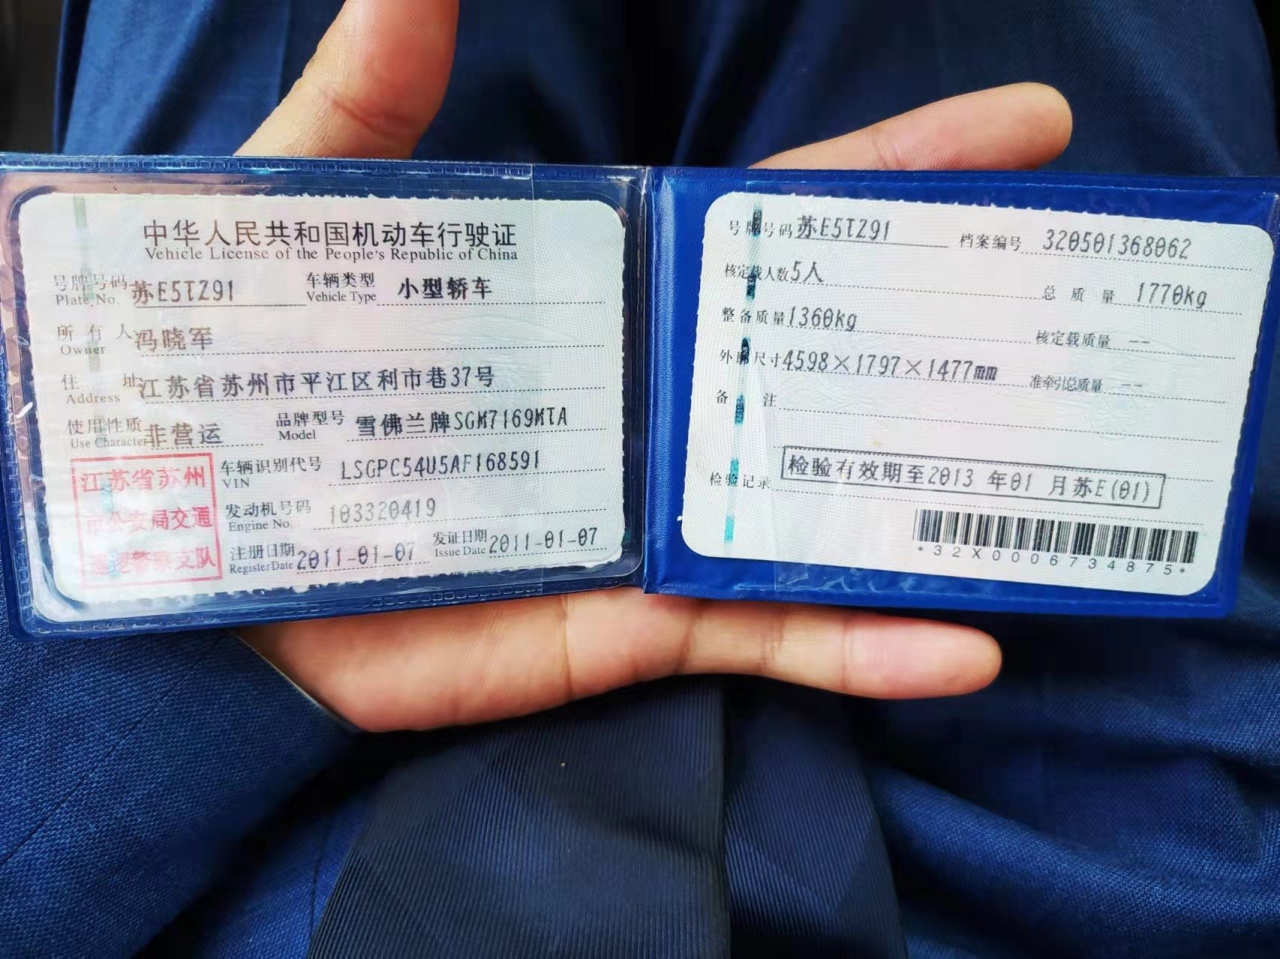 中华人民共和国机动车行驶证
Vehicle License of the People's Republic of China
号牌号码 苏E5TZ91 车辆类型 小型轿车
Plate No. Vehicle Type
所有人 冯晓军
Owner
住址 江苏省苏州市平江区利市巷37号
Address
使用性质 非营运 品牌型号 雪佛兰牌SGM7169MTA
Use Character Model
车辆识别代号 LSGPC54U5AF168591
VIN
发动机号码 103320419
Engine No.
注册日期 2011-01-07 发证日期 2011-01-07
Register Date Issue Date
江苏省苏州
市公安局交通
巡逻警察支队
号牌号码 苏E5TZ91 档案编号 320501368062
核定载人数 5人 总质量 1770kg
整备质量 1360kg 核定载质量 --
外廓尺寸 4598×1797×1477mm 准牵引总质量 --
备注
检验记录 检验有效期至2013 年01 月苏E(01)
*32X0006734875*